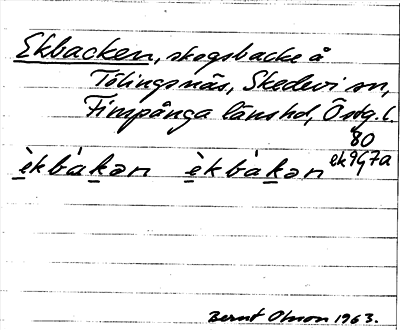 Ekbacken, skogsbacke å
Tólingsnäs, Skedevi sn,
Finspånga länshd, Östg. l.
80
ek 967a
èkbàkən èkbàkən
Bernt Olsson 1963.